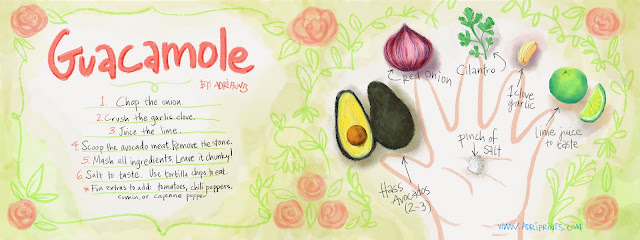 Guacamole
BY: ADRIPRINTS
1. Chop the onion.
2. Crush the garlic clove.
3. Juice the lime.
4 Scoop the avocado meat. Remove the stone.
5. Mash all ingredients. Leave it chunky!
6 Salt to taste. Use tortilla chips to eat.
* Fun extras to add: tomatoes, chili peppers,
cumin, or cayenne pepper
Red Onion
Cilantro
1 clove
garlic
lime juice
to taste
pinch of
salt
Hass
Avocados
(2-3)
WWW.ADRIPRINTS.COM